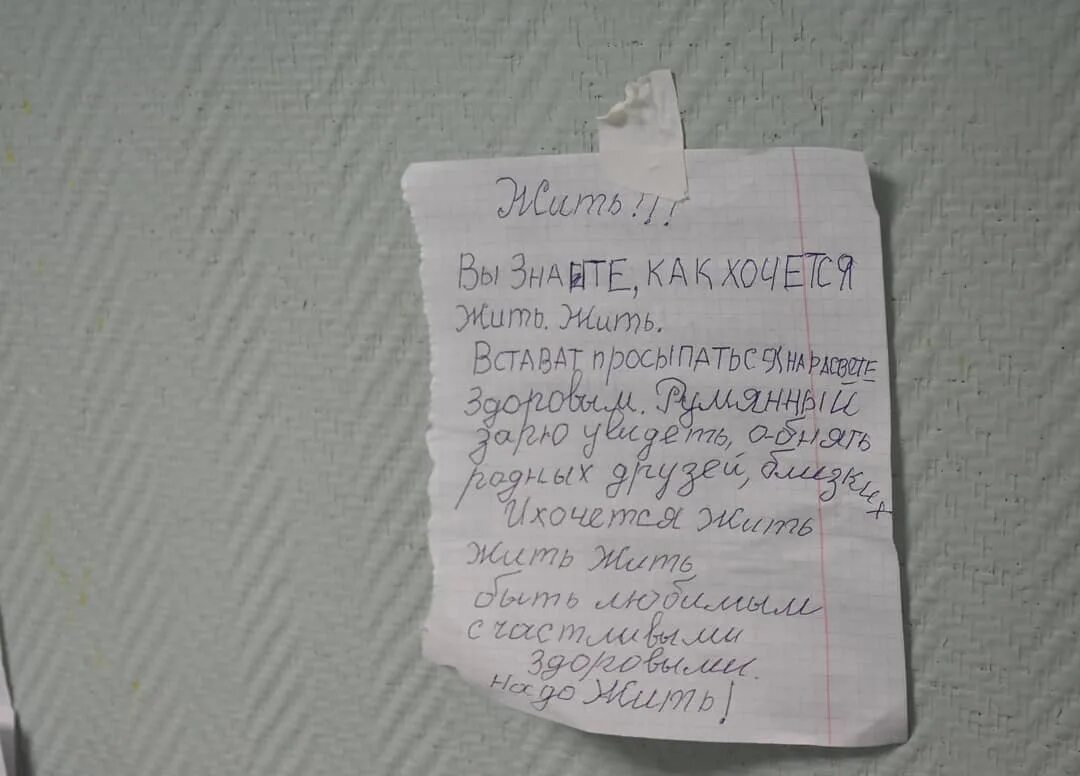 Жить!!!
Вы ЗНАЕТЕ, КАК ХОЧЕТСЯ
Жить. Жить.
ВСТАВАТ, просыпаться НА РАСВЕТЕ
Здоровым. Румянный
зарю увидеть, о-бнять
родных друзей, близких
И хочется Жить
Жить Жить
быть любимым
счастливыми
Здоровыми.
надо Жить!